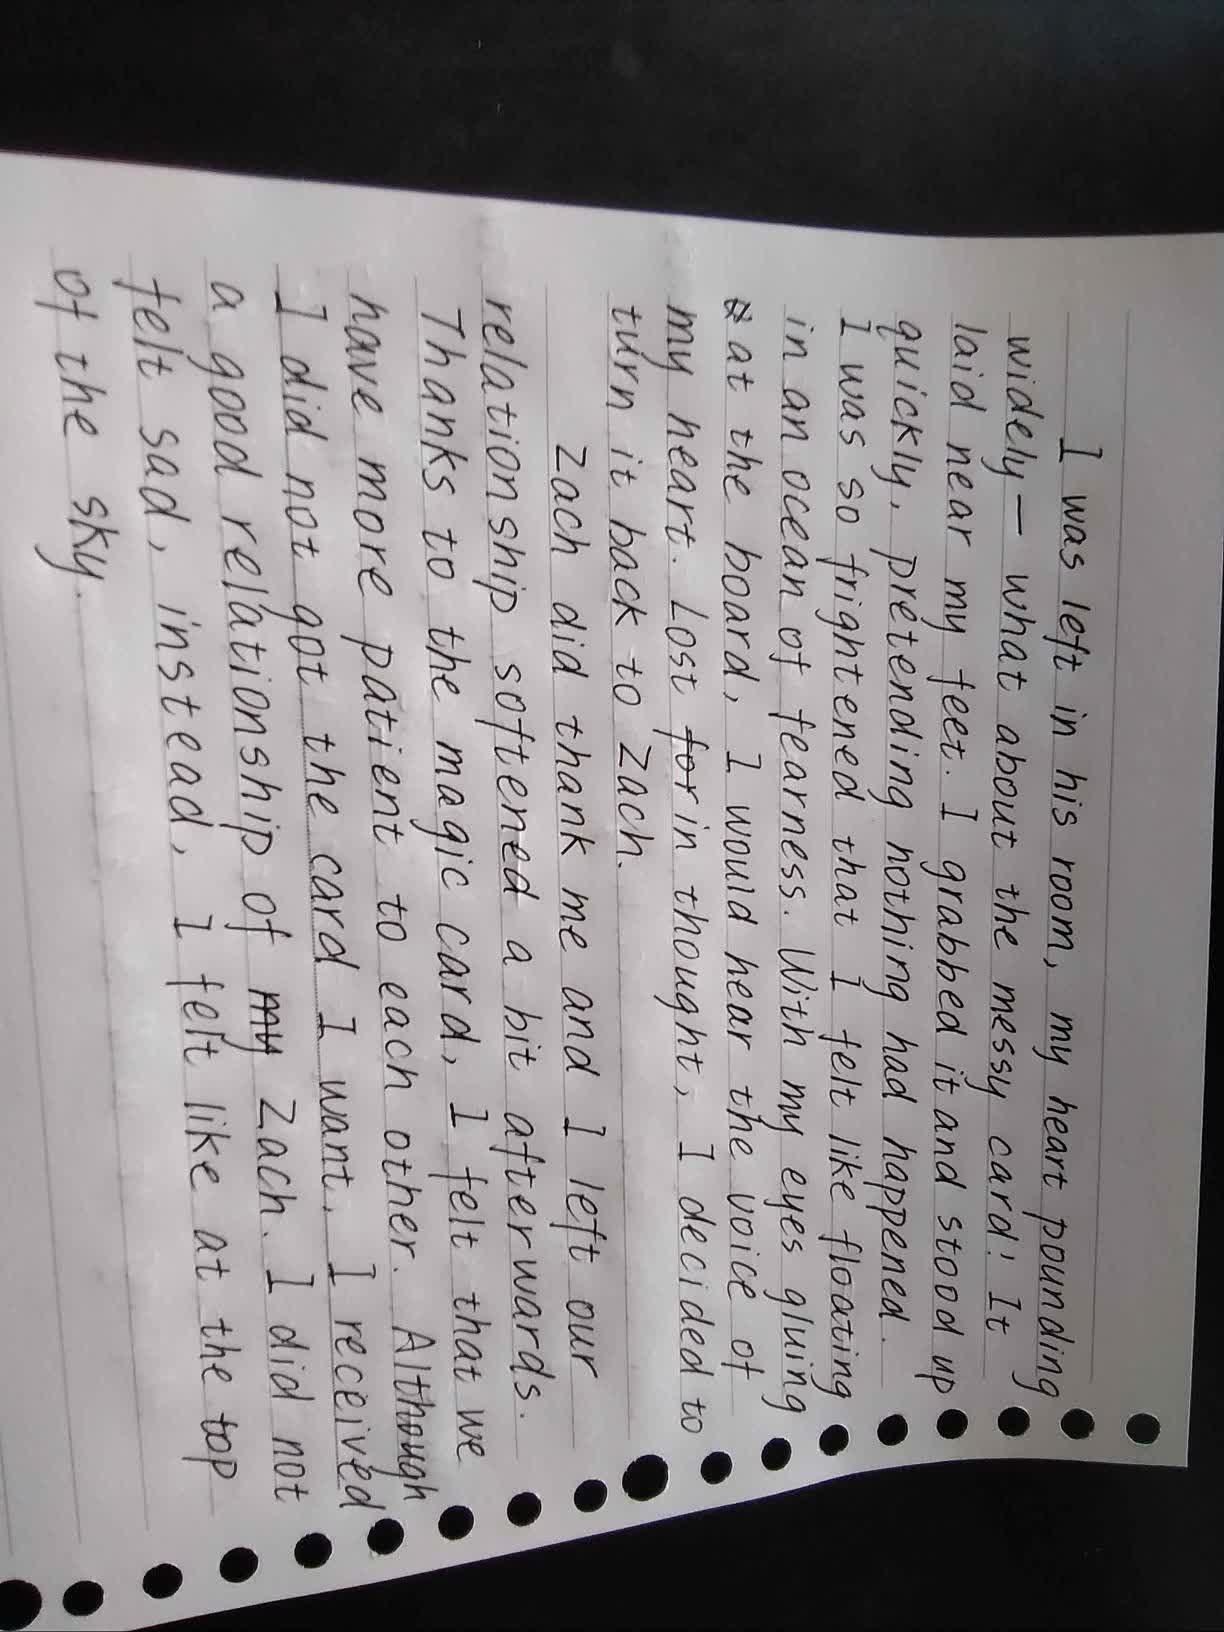 I was left in his room, my heart pounding
widely — what about the messy card! It
laid near my feet. I grabbed it and stood up
quickly, pretending nothing had happened.
I was so frightened that I felt like floating
in an ocean of fearness. With my eyes gluing
at the board, I would hear the voice of
my heart. Lost for in thought, I decided to
turn it back to Zach.
Zach did thank me and I left our
relationship softened a bit afterwards.
Thanks to the magic card, I felt that we
have more patient to each other. Although
I did not got the card I want, I received
a good relationship of my Zach. I did not
felt sad, instead, I felt like at the top
of the sky.